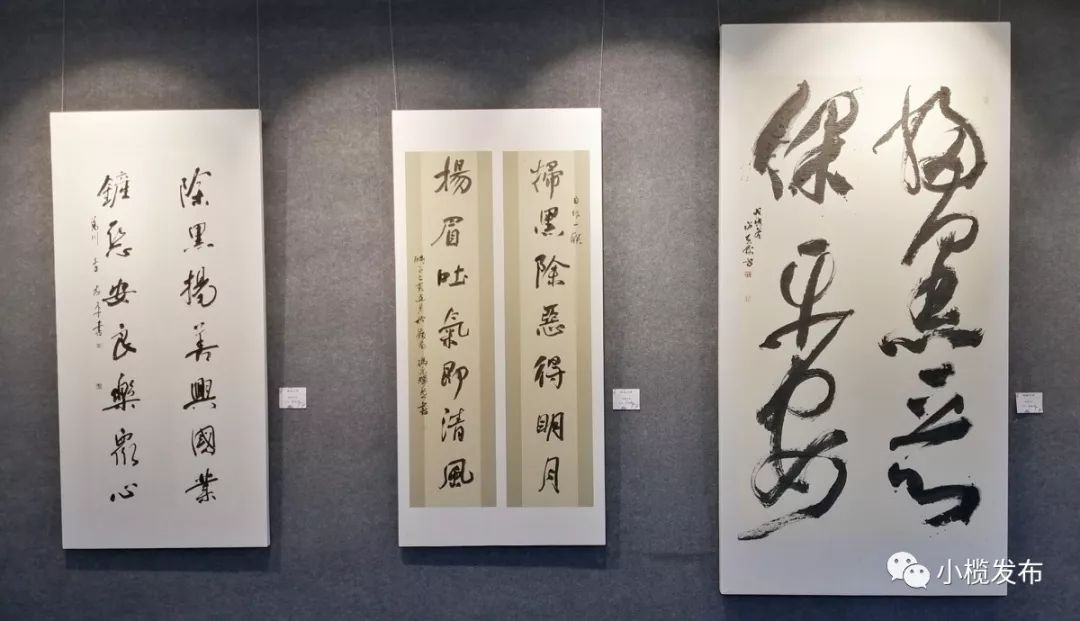 除黑揚善興國業
鏟惡安良樂眾心
書
自作一联
掃黑除惡得明月
揚眉吐氣即清風
掃黑惡
保平安
小榄发布